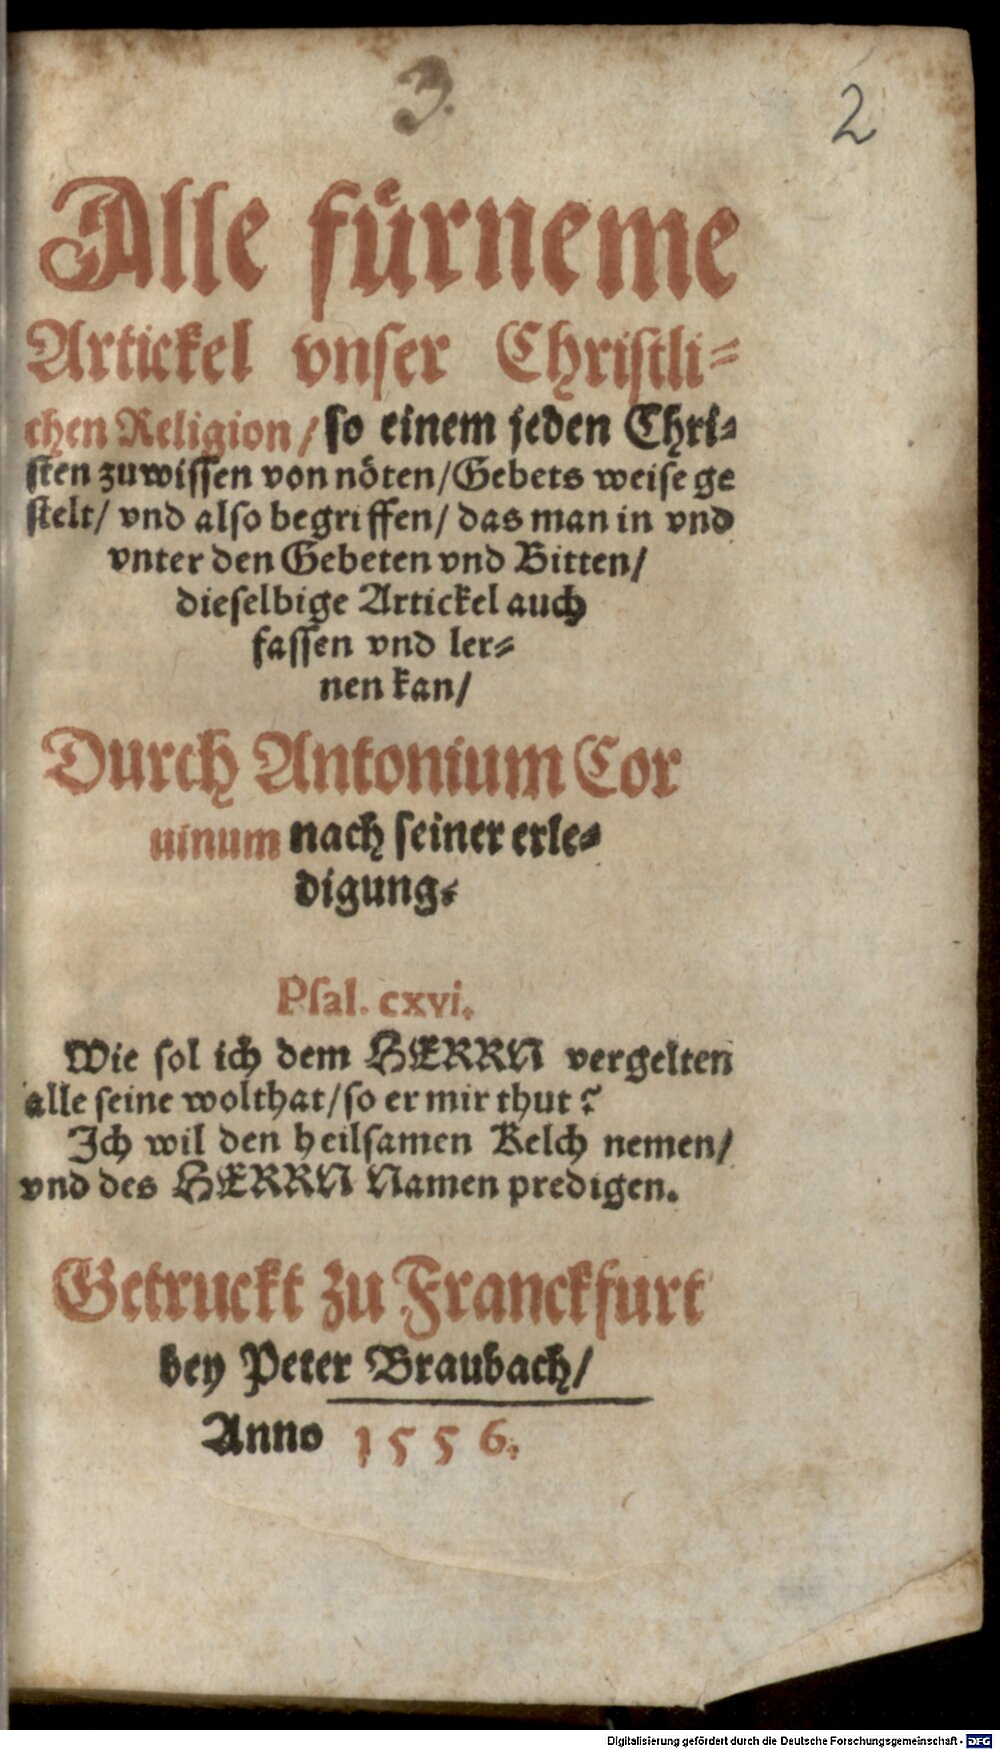 3.
2
Alle fürneme
Artickel vnser Christli-
chen Religion / so einem jeden Chri-
sten zuwissen von nöten / Gebets weise ge
stelt / vnd also begriffen / das man in vnd
vnter den Gebeten vnd Bitten /
dieselbige Artickel auch
fassen vnd ler-
nen kan /
Durch Antonium Cor
uinum nach seiner erle-
digung.
Psal. cxvi.
Wie sol ich dem HERRN vergelten
alle seine wolthat / so er mir thut?
Ich wil den heilsamen Kelch nemen /
vnd des HERRN Namen predigen.
Getruckt zu Franckfurt
bey Peter Braubach /
Anno 1556.
Digitalisierung gefördert durch die Deutsche Forschungsgemeinschaft - DFG